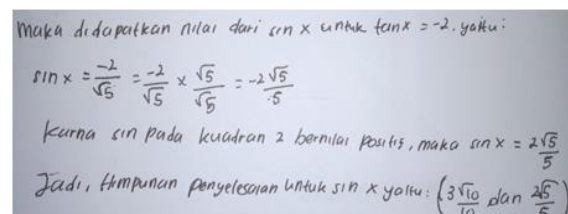 maka didapatkan nilai dari sin x untuk tan x = -2. yaitu:
sin x = -2/√5 = -2/√5 × √5/√5 = -2√5/5
karna sin pada kuadran 2 bernilai positif, maka sin x = 2√5/5
Jadi, Himpunan penyelesaian untuk sin x yaitu: (3√10/10 dan 2√5/5